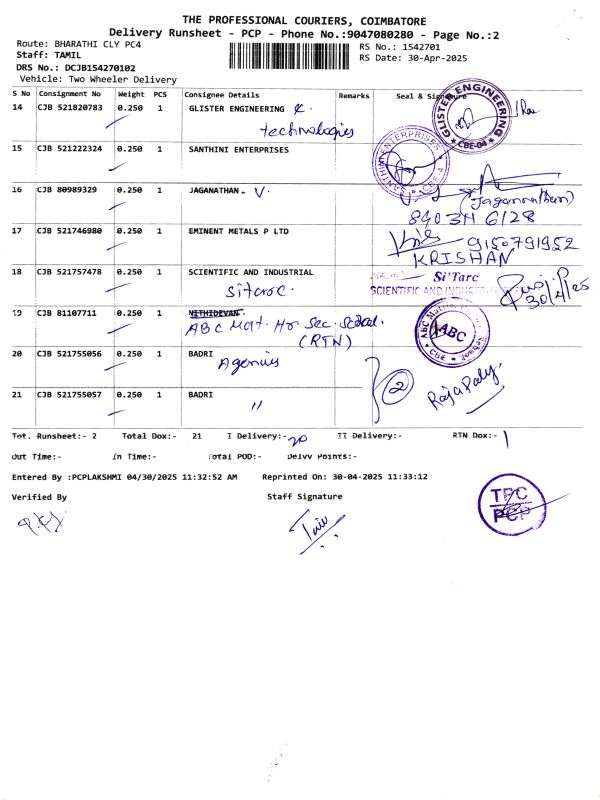 THE PROFESSIONAL COURIERS, COIMBATORE
Delivery Runsheet - PCP - Phone No.:9047080280 - Page No.:2
Route: BHARATHI CLY PC4
RS No.: 1542701
Staff: TAMIL
RS Date: 30-Apr-2025
DRS No.: DCJB154270102
Vehicle: Two Wheeler Delivery
S No Consignment No Weight PCS Consignee Details Remarks Seal & Signature
14 CJB 521820783 0.250 1 GLISTER ENGINEERING &
technologies
GLISTER ENGINEERING CBE-04
15 CJB 521222324 0.250 1 SANTHINI ENTERPRISES
SANTHINI ENTERPRISES CBE-4
16 CJB 80989329 0.250 1 JAGANATHAN. V.
(Jagannathan)
17 CJB 521746980 0.250 1 EMINENT METALS P LTD
9150791952
KRISHAN
18 CJB 521757478 0.250 1 SCIENTIFIC AND INDUSTRIAL
Si'Tarc
sitarc.
SCIENTIFIC AND INDUSTRIAL
30/4/25
19 CJB 81107711 0.250 1 NITHIDEVAN
ABC Mat. Hr Sec. School.
(RTN)
ABC
CBE
20 CJB 521755056 0.250 1 BADRI
Agencies
2
21 CJB 521755057 0.250 1 BADRI
"
Tot. Runsheet:- 2 Total Dox:- 21 I Delivery:- 20 II Delivery:- RTN Dox:- 1
Out Time:- In Time:- Total POD:- Delvv Points:-
Entered By :PCPLAKSHMI 04/30/2025 11:32:52 AM Reprinted On: 30-04-2025 11:33:12
Verified By Staff Signature
TPC
PCP